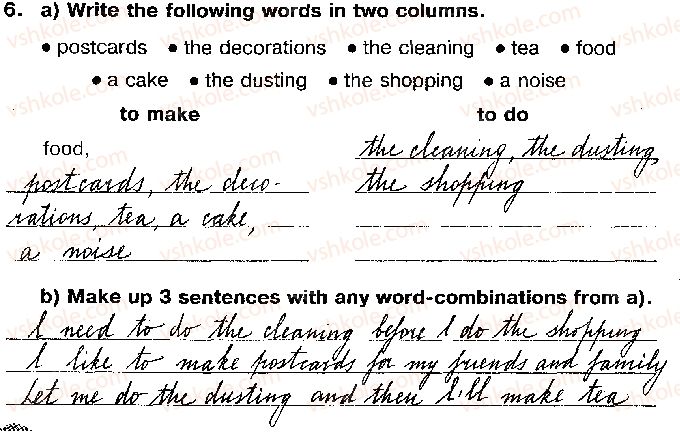 6. a) Write the following words in two columns.
• postcards • the decorations • the cleaning • tea • food
• a cake • the dusting • the shopping • a noise
to make to do
food, the cleaning, the dusting
postcards, the deco- the shopping
rations, tea, a cake,
a noise
b) Make up 3 sentences with any word-combinations from a).
I need to do the cleaning before I do the shopping
I like to make postcards for my friends and family
Let me do the dusting and then I'll make tea
vshkole.com